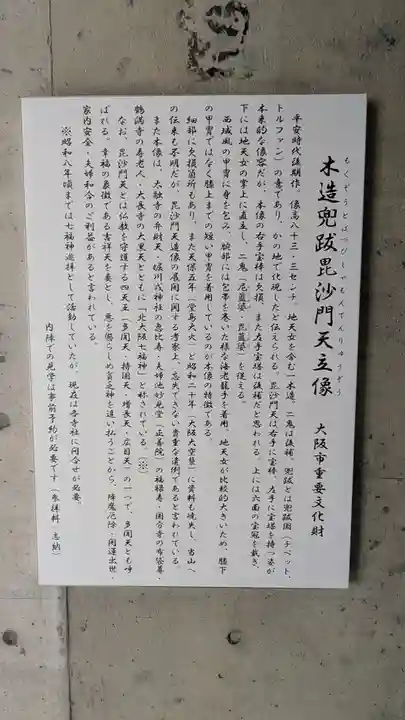 もくぞうとばつびしゃもんてんりゅうぞう
木造兜跋毘沙門天立像
大阪市重要文化財
平安時代後期作。像高八十三・三センチ。地天女を含む一木造。二鬼は後補。兜跋とは兜跋国（チベット、
トルファン）の意であり、かの地で化現したと伝えられる。毘沙門天は右手に宝棒、左手に宝塔を持つ姿が
本来的な像容だが、本像の右手宝棒は欠損、また左手宝塔は後補だと思われる。上には六面の宝冠を戴き、
下には地天女の掌上に直立し、二鬼（尼藍婆・毘藍婆）を従える。
西域風の甲冑に身を包み、腕部には包帯を巻いた様な海老籠手を着用。地天女が比較的大きいため、膝下
の甲冑ではなく膝上までの短い甲冑を着用しているのが本像の特徴である。
細部に欠損箇所もあり、また天保五年（堂島大火）と昭和二十年（大阪大空襲）に資料も焼失し、当山へ
の伝来も不明だが、毘沙門天造像の展開に関する考察上、忘失できない貴重な遺例であると言われている。
また本像は、太融寺の弁財天・堀川戎神社の恵比寿・夫婦池妙見堂（正善院）の福禄寿・国分寺の布袋尊・
鶴満寺の寿老人・大長寺の大黒天とともに「北大阪七福神」と称されている。（※）
なお、毘沙門天とは仏教を守護する四天王（多聞天・持国天・増長天・広目天）の一つで、多聞天とも呼
ばれる。幸福の象徴である吉祥天を妻とし、悪を懲らしめ貧乏神を追い払うことから、降魔厄除・開運出世
家内安全・夫婦和合のご利益があると言われている。
※昭和八年頃までは七福神巡拝として活動していたが、現在は各寺社に問合せが必要。
内陣での見学は事前予約が必要です（参拝料 志納）